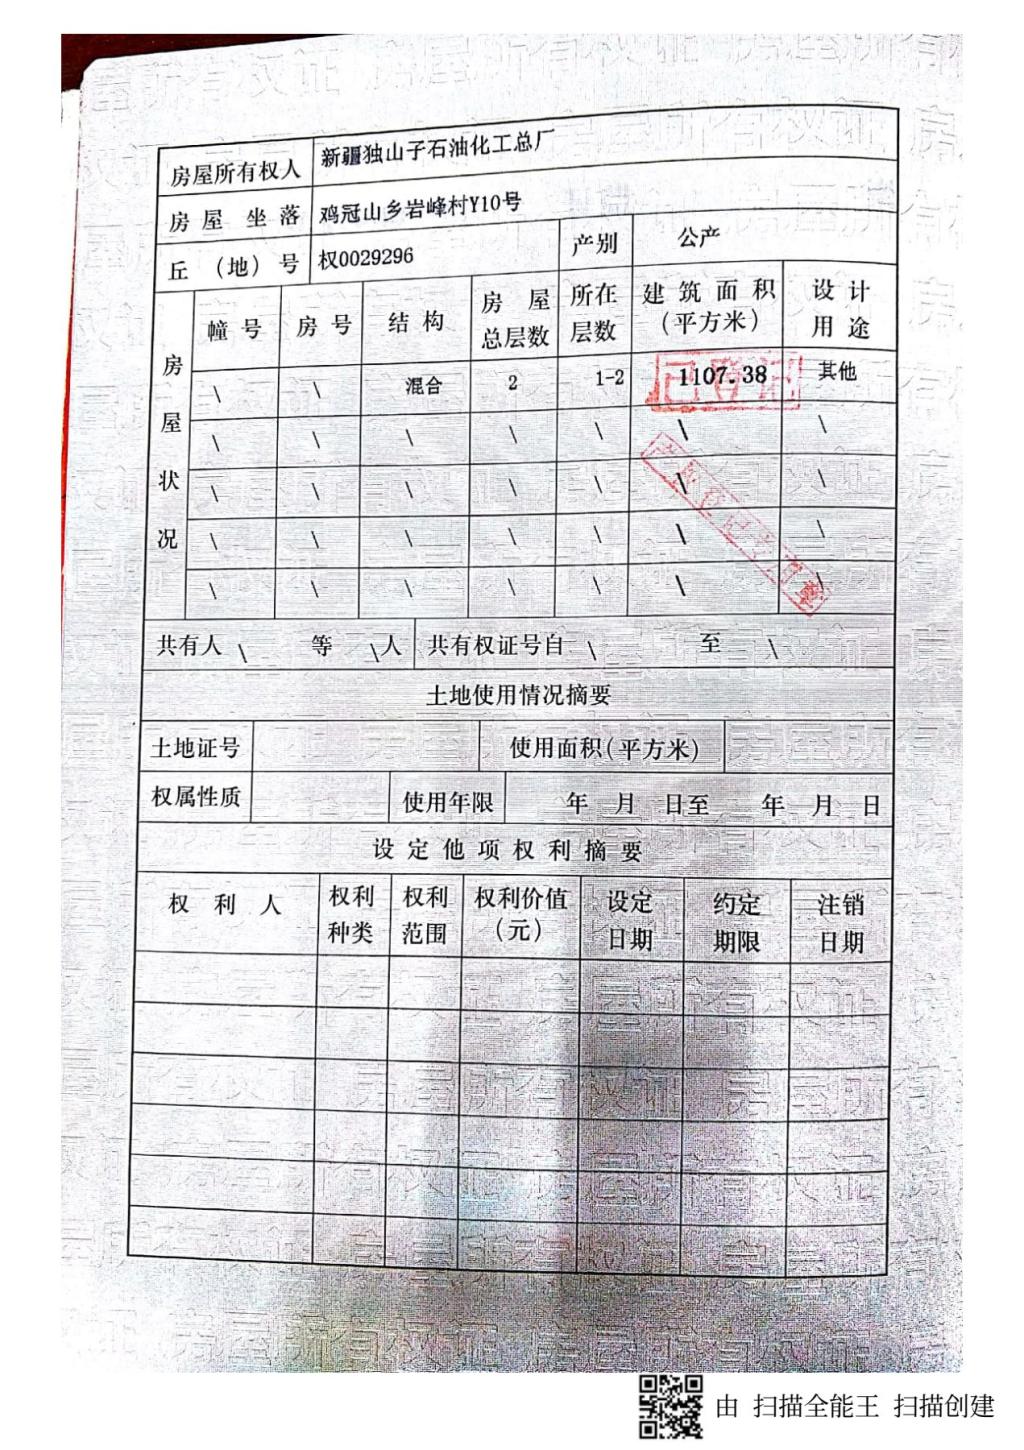 房屋所有权人 新疆独山子石油化工总厂
房屋坐落 鸡冠山乡岩峰村Y10号
丘（地）号 权0029296 产别 公产
房屋状况
幢号 房号 结构 房屋总层数 所在层数 建筑面积（平方米） 设计用途
\ \ 混合 2 1-2 1107.38 其他
已登记
\ \ \ \ \ \ \
\ \ \ \ \ \ \
\ \ \ \ \ \ \
\ \ \ \ \ \ \
共有人 \ 等 \人 共有权证号自 \ 至 \
土地使用情况摘要
土地证号 使用面积(平方米)
权属性质 使用年限 年 月 日至 年 月 日
设定他项权利摘要
权利人 权利种类 权利范围 权利价值（元） 设定日期 约定期限 注销日期
由 扫描全能王 扫描创建